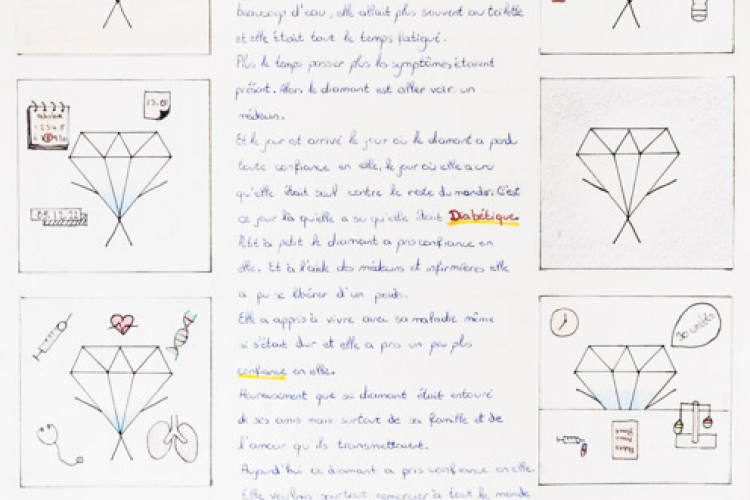 beaucoup d'eau, elle allait plus souvent au toilette
et elle était tout le temps fatigué.
Plus le temps passer plus les symptômes étaient
présent. Alors le diamant est aller voir un
médecin.
Et le jour est arrivé le jour où le diamant a perdu
toute confiance en elle, le jour où elle a cru
qu'elle était seul contre le reste du monde. C'est
ce jour là qu'elle a su qu'elle était Diabétique
Petit à petit le diamant a pris confiance en
elle. Et à l'aide des médecins et infirmières elle
a pu se libérer d'un poids.
Elle a appris à vivre avec sa maladie même
si s'était dur et elle a pris un peu plus
confiance en elle.
Heureusement que se diamant était entouré
de ses amis mais surtout de sa famille et de
l'amour qu'ils transmettaient.
Aujourd'hui ce diamant a pris confiance en elle
Elle voulais surtout remercier à tout le monde
30 unités